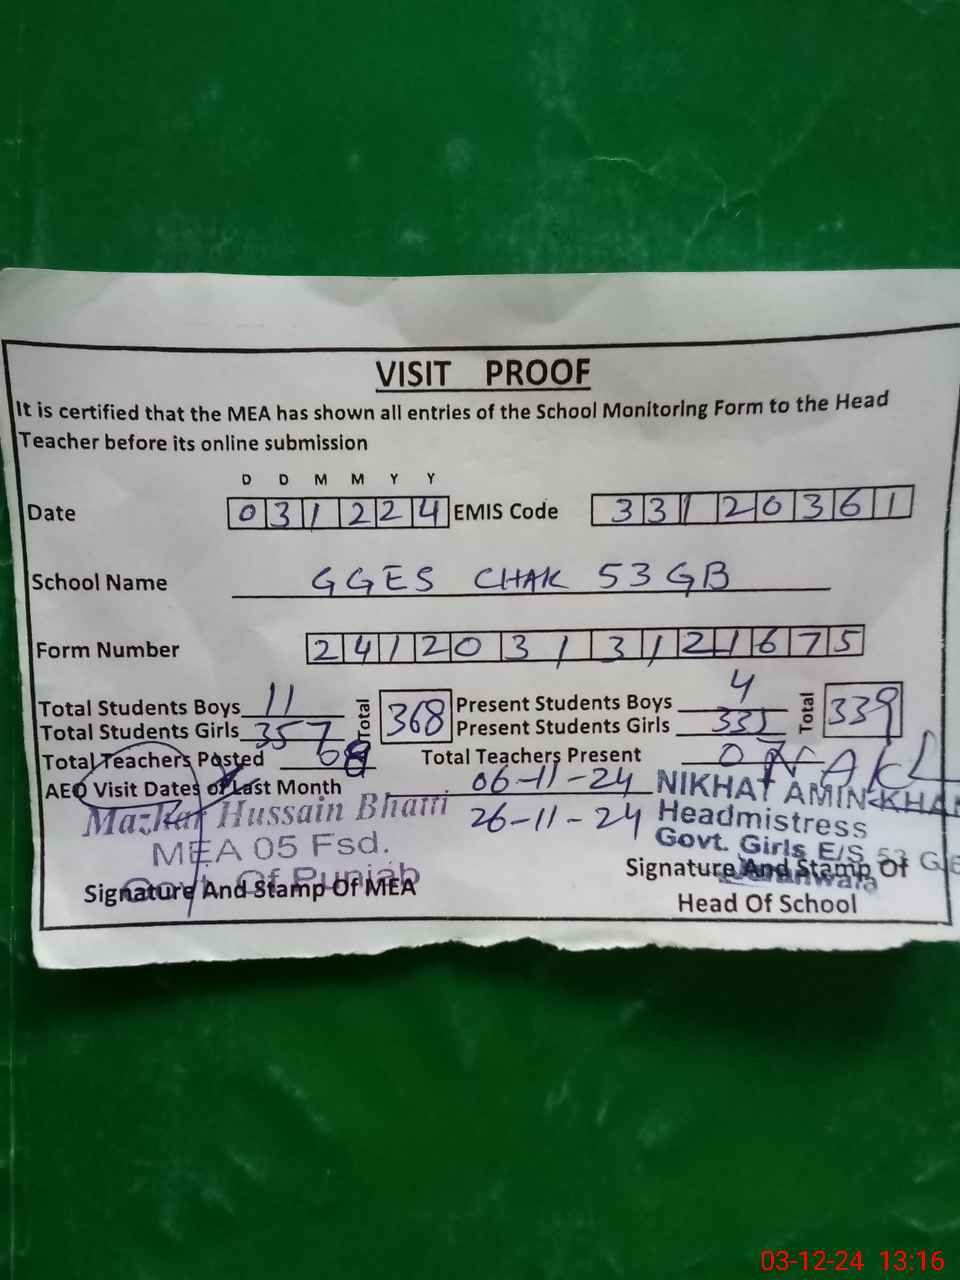 VISIT PROOF
It is certified that the MEA has shown all entries of the School Monitoring Form to the Head
Teacher before its online submission
D D M M Y Y
Date 031224 EMIS Code 33120361
School Name GGES CHAK 53 GB
Form Number 24120313121675
Total Students Boys 11 Total 368 Present Students Boys 4 Total 339
Total Students Girls 357 Present Students Girls 335
Total Teachers Posted Total Teachers Present
AEO Visit Dates of Last Month 06-11-24
26-11-24
Mazhar Hussain Bhatti
MEA 05 Fsd.
Govt. Of Punjab
Signature And Stamp Of MEA
NIKHAT AMIN KHAN
Headmistress
Govt. Girls E/S 53 G.B
Signature And Stamp Of
Head Of School
03-12-24 13:16